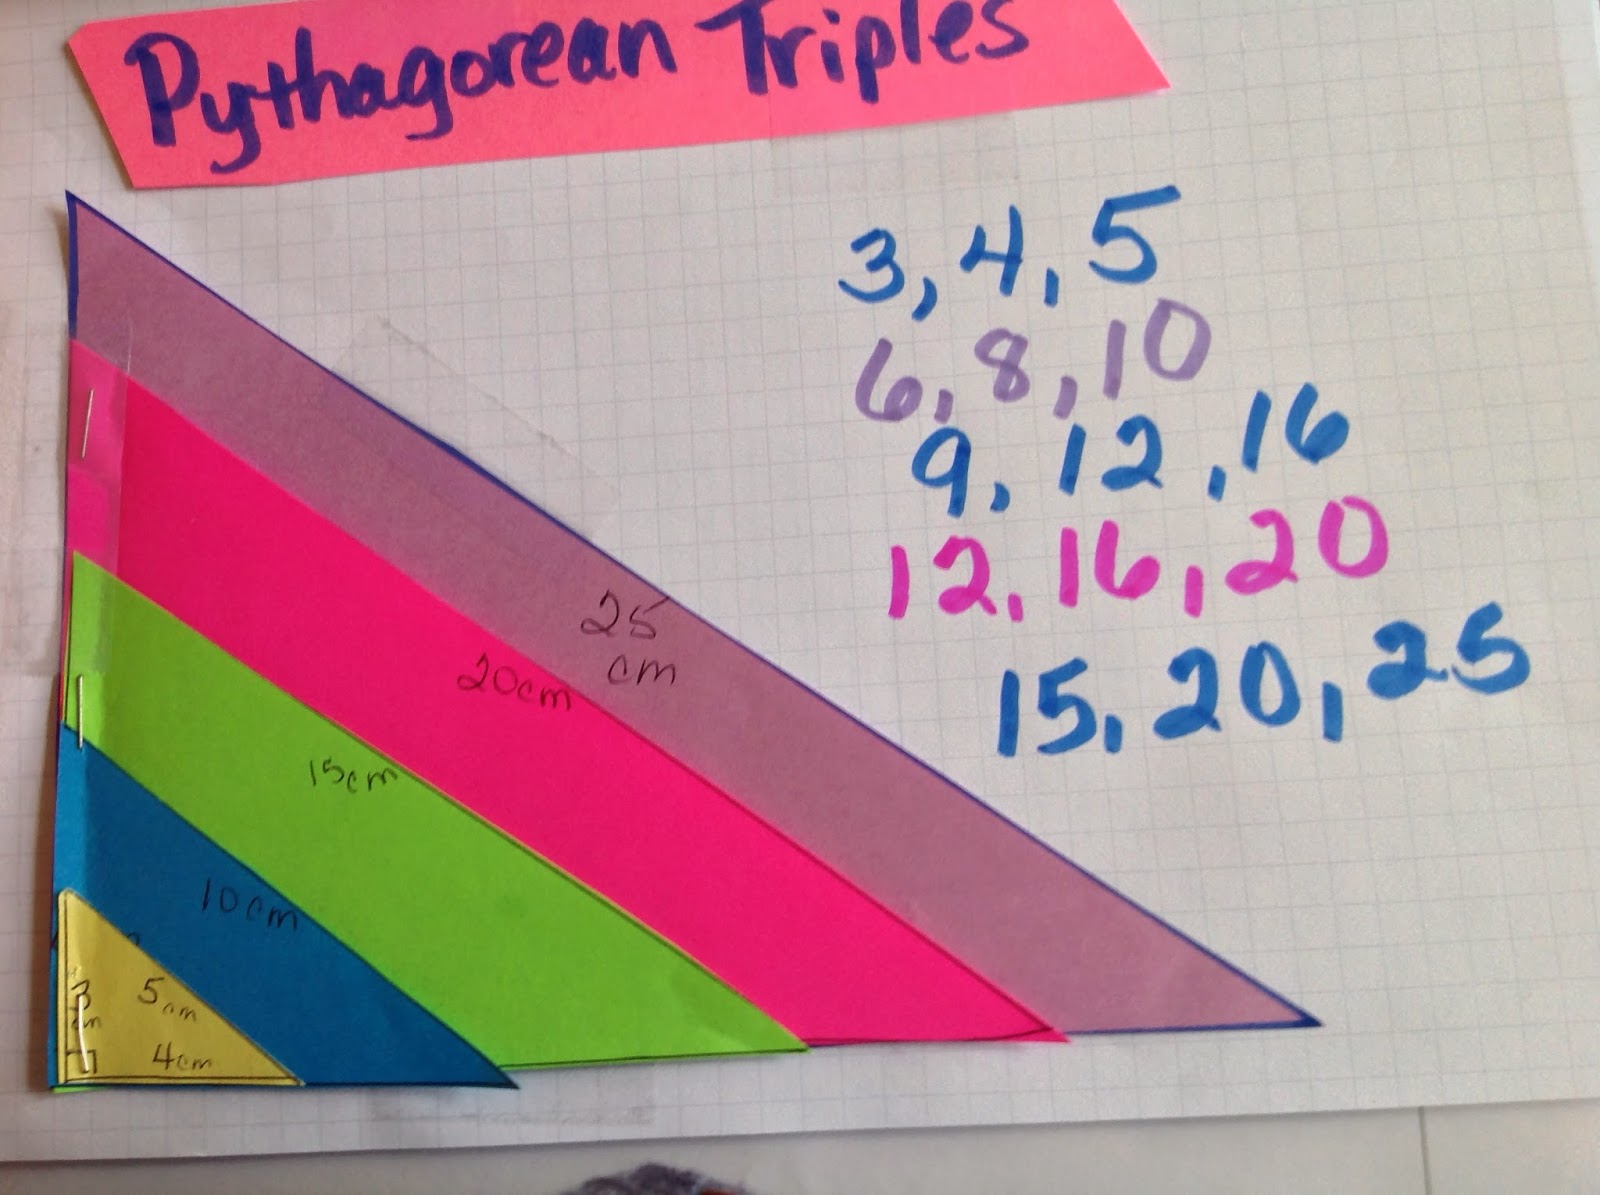 Pythagorean Triples
3, 4, 5
6, 8, 10
9, 12, 16
12, 16, 20
15, 20, 25
25
cm
20cm
15cm
10cm
5cm
3cm
4cm